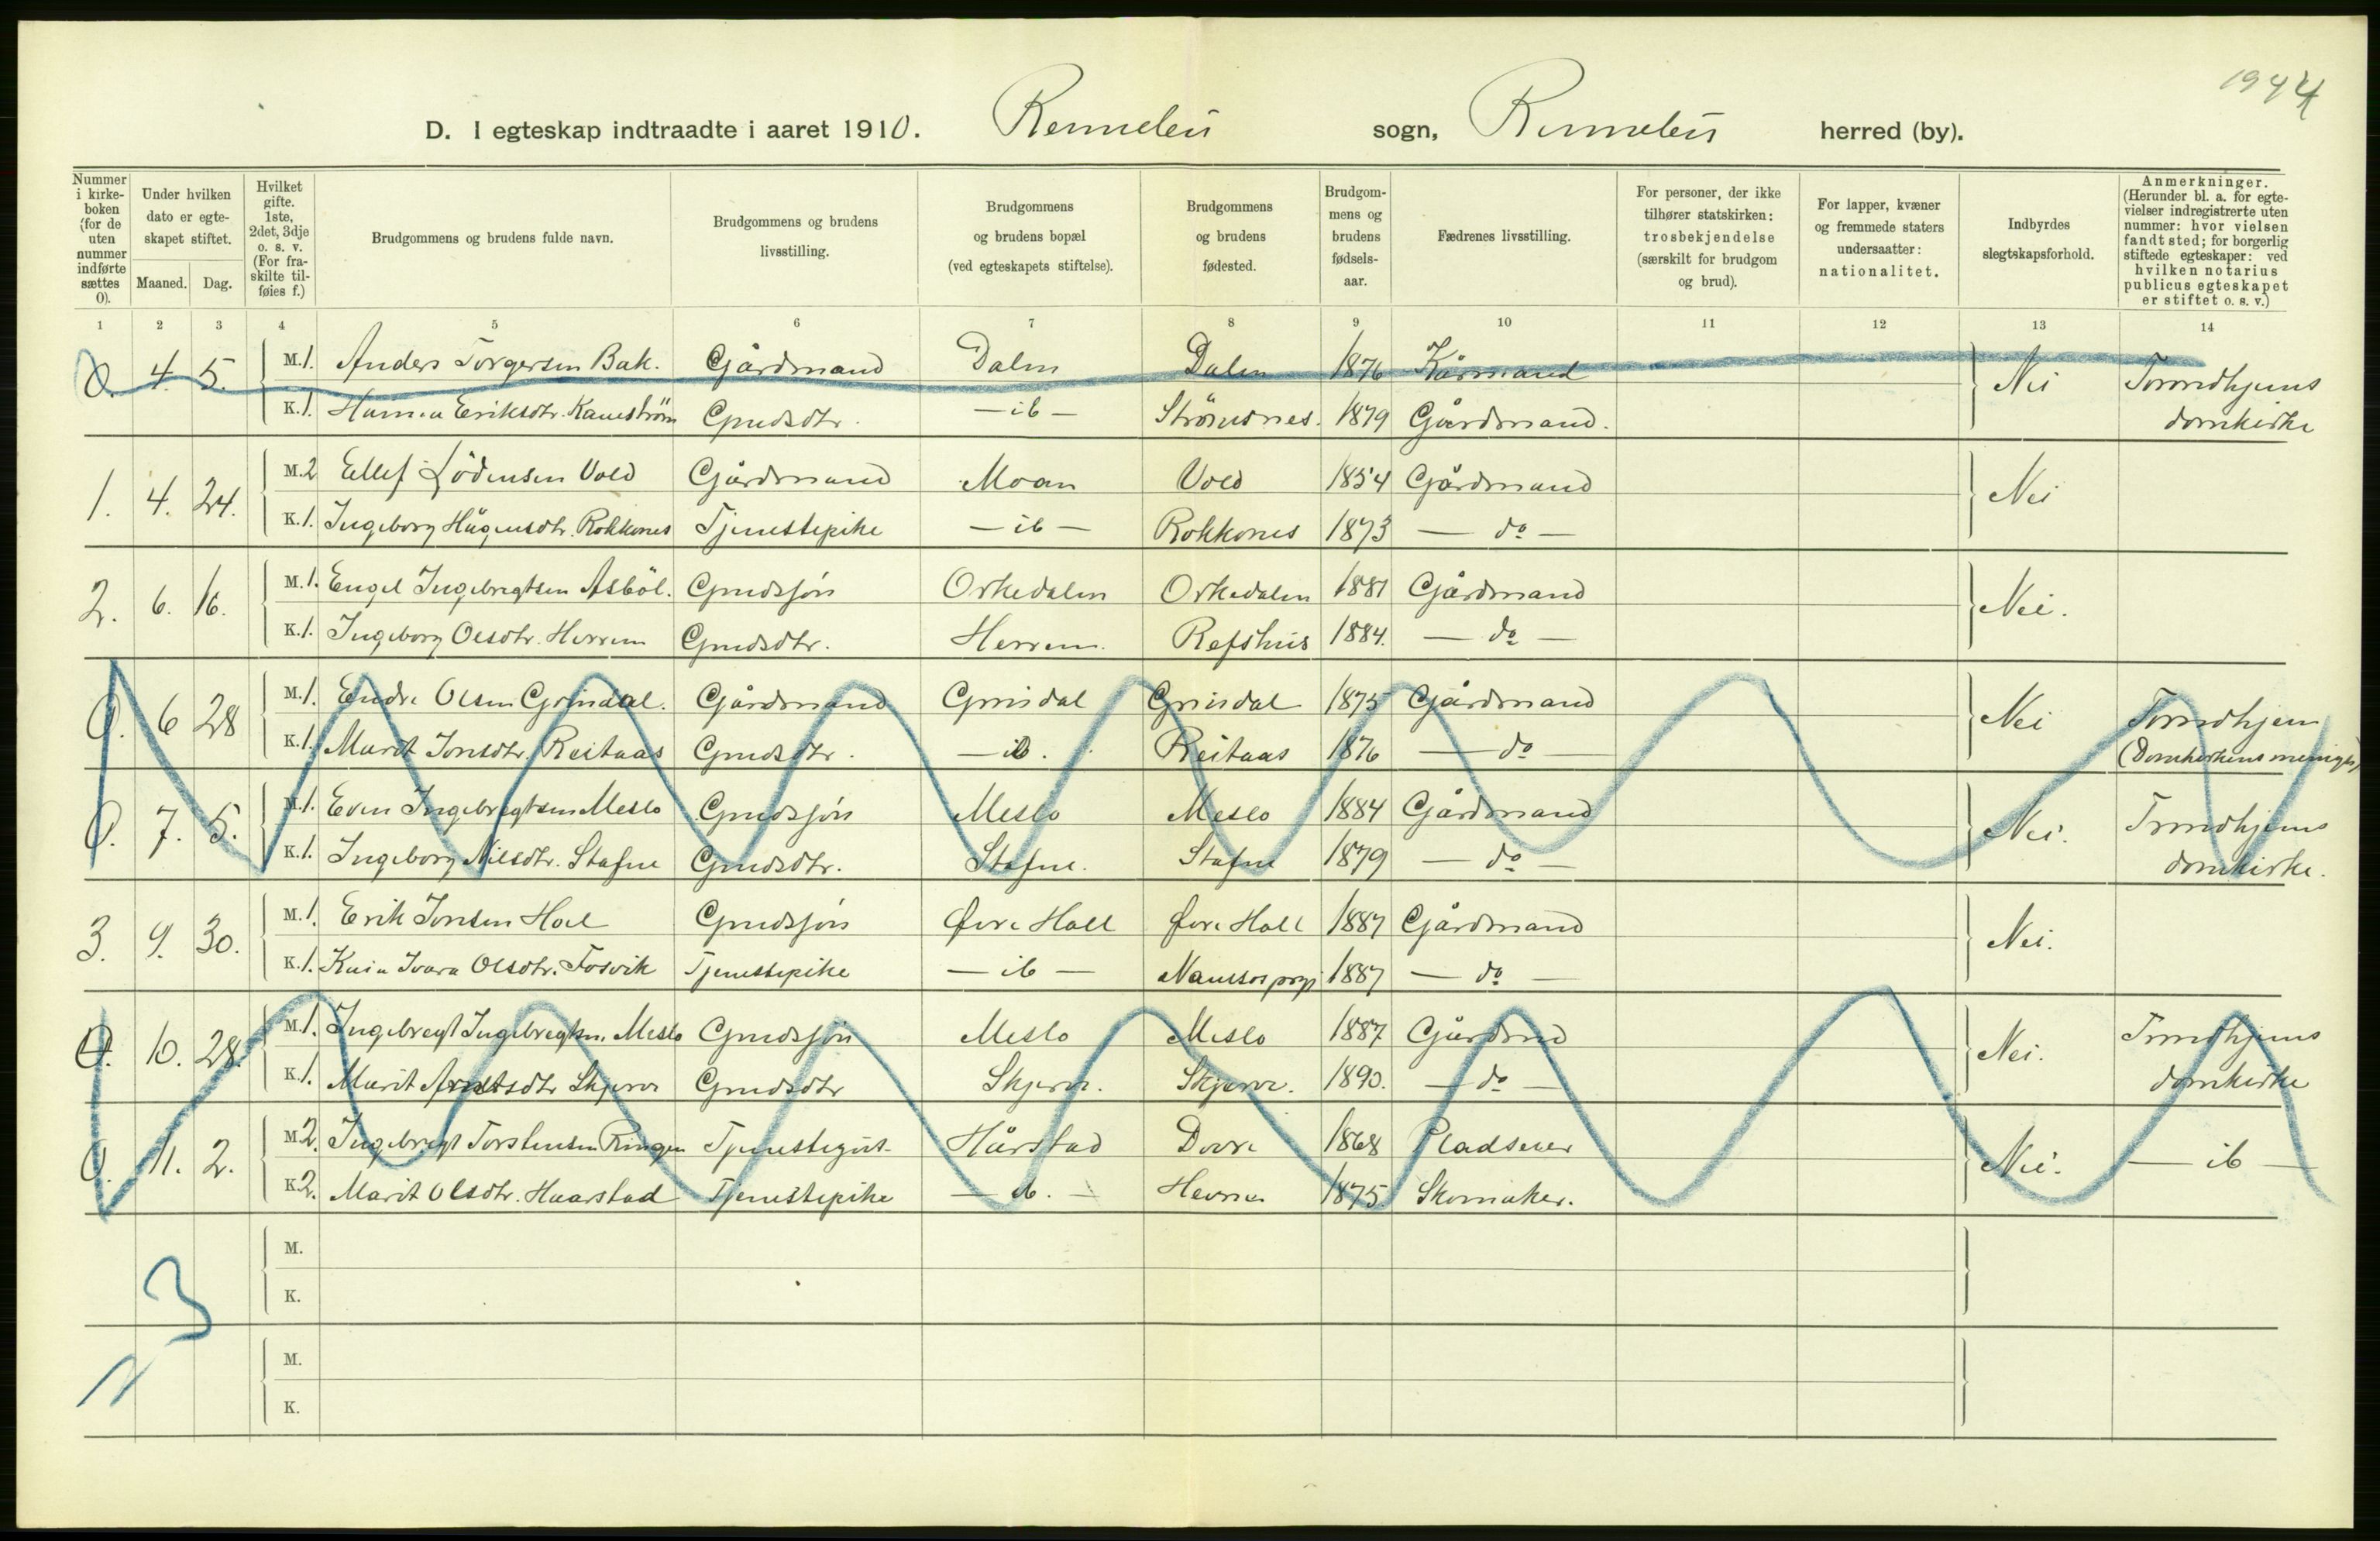 1944
D. I egteskap indtraadte i aaret 1910. Rennebu sogn, Rennebu herred (by).
Nummer i kirke-boken (for de uten nummer indførte sættes 0).
Under hvilken dato er egte-skapet stiftet.
Maaned. Dag.
Hvilket gifte. 1ste, 2det, 3dje o. s. v. (For fra-skilte til-føies f.)
Brudgommens og brudens fulde navn.
Brudgommens og brudens livsstilling.
Brudgommens og brudens bopæl (ved egteskapets stiftelse).
Brudgommens og brudens fødested.
Brudgom-mens og brudens fødsels-aar.
Fædrenes livsstilling.
For personer, der ikke tilhører statskirken: trosbekjendelse (særskilt for brudgom og brud).
For lapper, kvæner og fremmede staters undersaatter: nationalitet.
Indbyrdes slegtskapsforhold.
Anmerkninger. (Herunder bl. a. for egte-vielser indregistrerte uten nummer: hvor vielsen fandt sted; for borgerlig stiftede egteskaper: ved hvilken notarius publicus egteskapet er stiftet o. s. v.)
1 2 3 4 5 6 7 8 9 10 11 12 13 14
0. 4. 5. M. 1. Anders Torgersen Bak. Gårdmand Dalen Dalen 1876 Kårmand Nei Trondhjems
K. 1. Eriksdtr. Gmdsdtr. — ib — Strömsnes. 1879 Gårdmand. domkirke
1. 4. 24. M. 2 Ellef Lödensen Vold Gårdmand Moan Vold 1854 Gårdmand Nei
K. 1. Ingeborg Hågensdtr. Rokkones Tjenestepike — ib — Rokkones 1873 — do —
2. 6. 16. M. 1. Engel Ingebrigtsen Asböl. Gmdssjön Orkedalen Orkedalen 1881 Gårdmand Nei.
K. 1. Ingeborg Olsdtr. Herrem Gmdsdtr. Herrem. Refshus 1884. — do —
0. 6 28 M. 1. Endre Olsen Grindal. Gårdmand Grindal Grindal 1875 Gårdmand Nei Trondhjem
K. 1. Marit Jonsdtr. Reitaas Gmdsdtr. — ib. Reitaas 1876 — do — (Domkirkens menigh.)
0. 7. 5. M. 1. Even Ingebrigtsen Meslo Gmdssjön Meslo Meslo 1884 Gårdmand Nei. Trondhjems
K. 1. Ingeborg Nilsdtr. Stafne Gmdsdtr. Stafne. Stafne 1879 — do — domkirke.
3. 9. 30. M. 1. Erik Jonsen Hol Gmdssjön Øvre Holl Øvre Holl 1887 Gårdmand Nei.
K. 1. Olsdtr. Fosvik Tjenestepike — ib — Namsos prgj 1887 — do —
0. 10. 28. M. 1. Ingebregt Ingebregtsn. Meslo Gmdssjön Meslo Meslo 1887 Gårdmd Nei. Trondhjems
K. 1. Marit Arntsdtr Skjerve Gmdsdtr Skjerve. Skjerve. 1890. — do — domkirke
0. 11. 2. M. 2. Ingebrigt Torstensen Ringen Tjenestegut. Hårstad Dovre 1868 Pladseier Nei. — ib —
K. 2. Marit Olsdtr. Haarstad Tjenestepike — ib. — Hevne 1875. Skomaker.
M.
3
K.
M.
K.